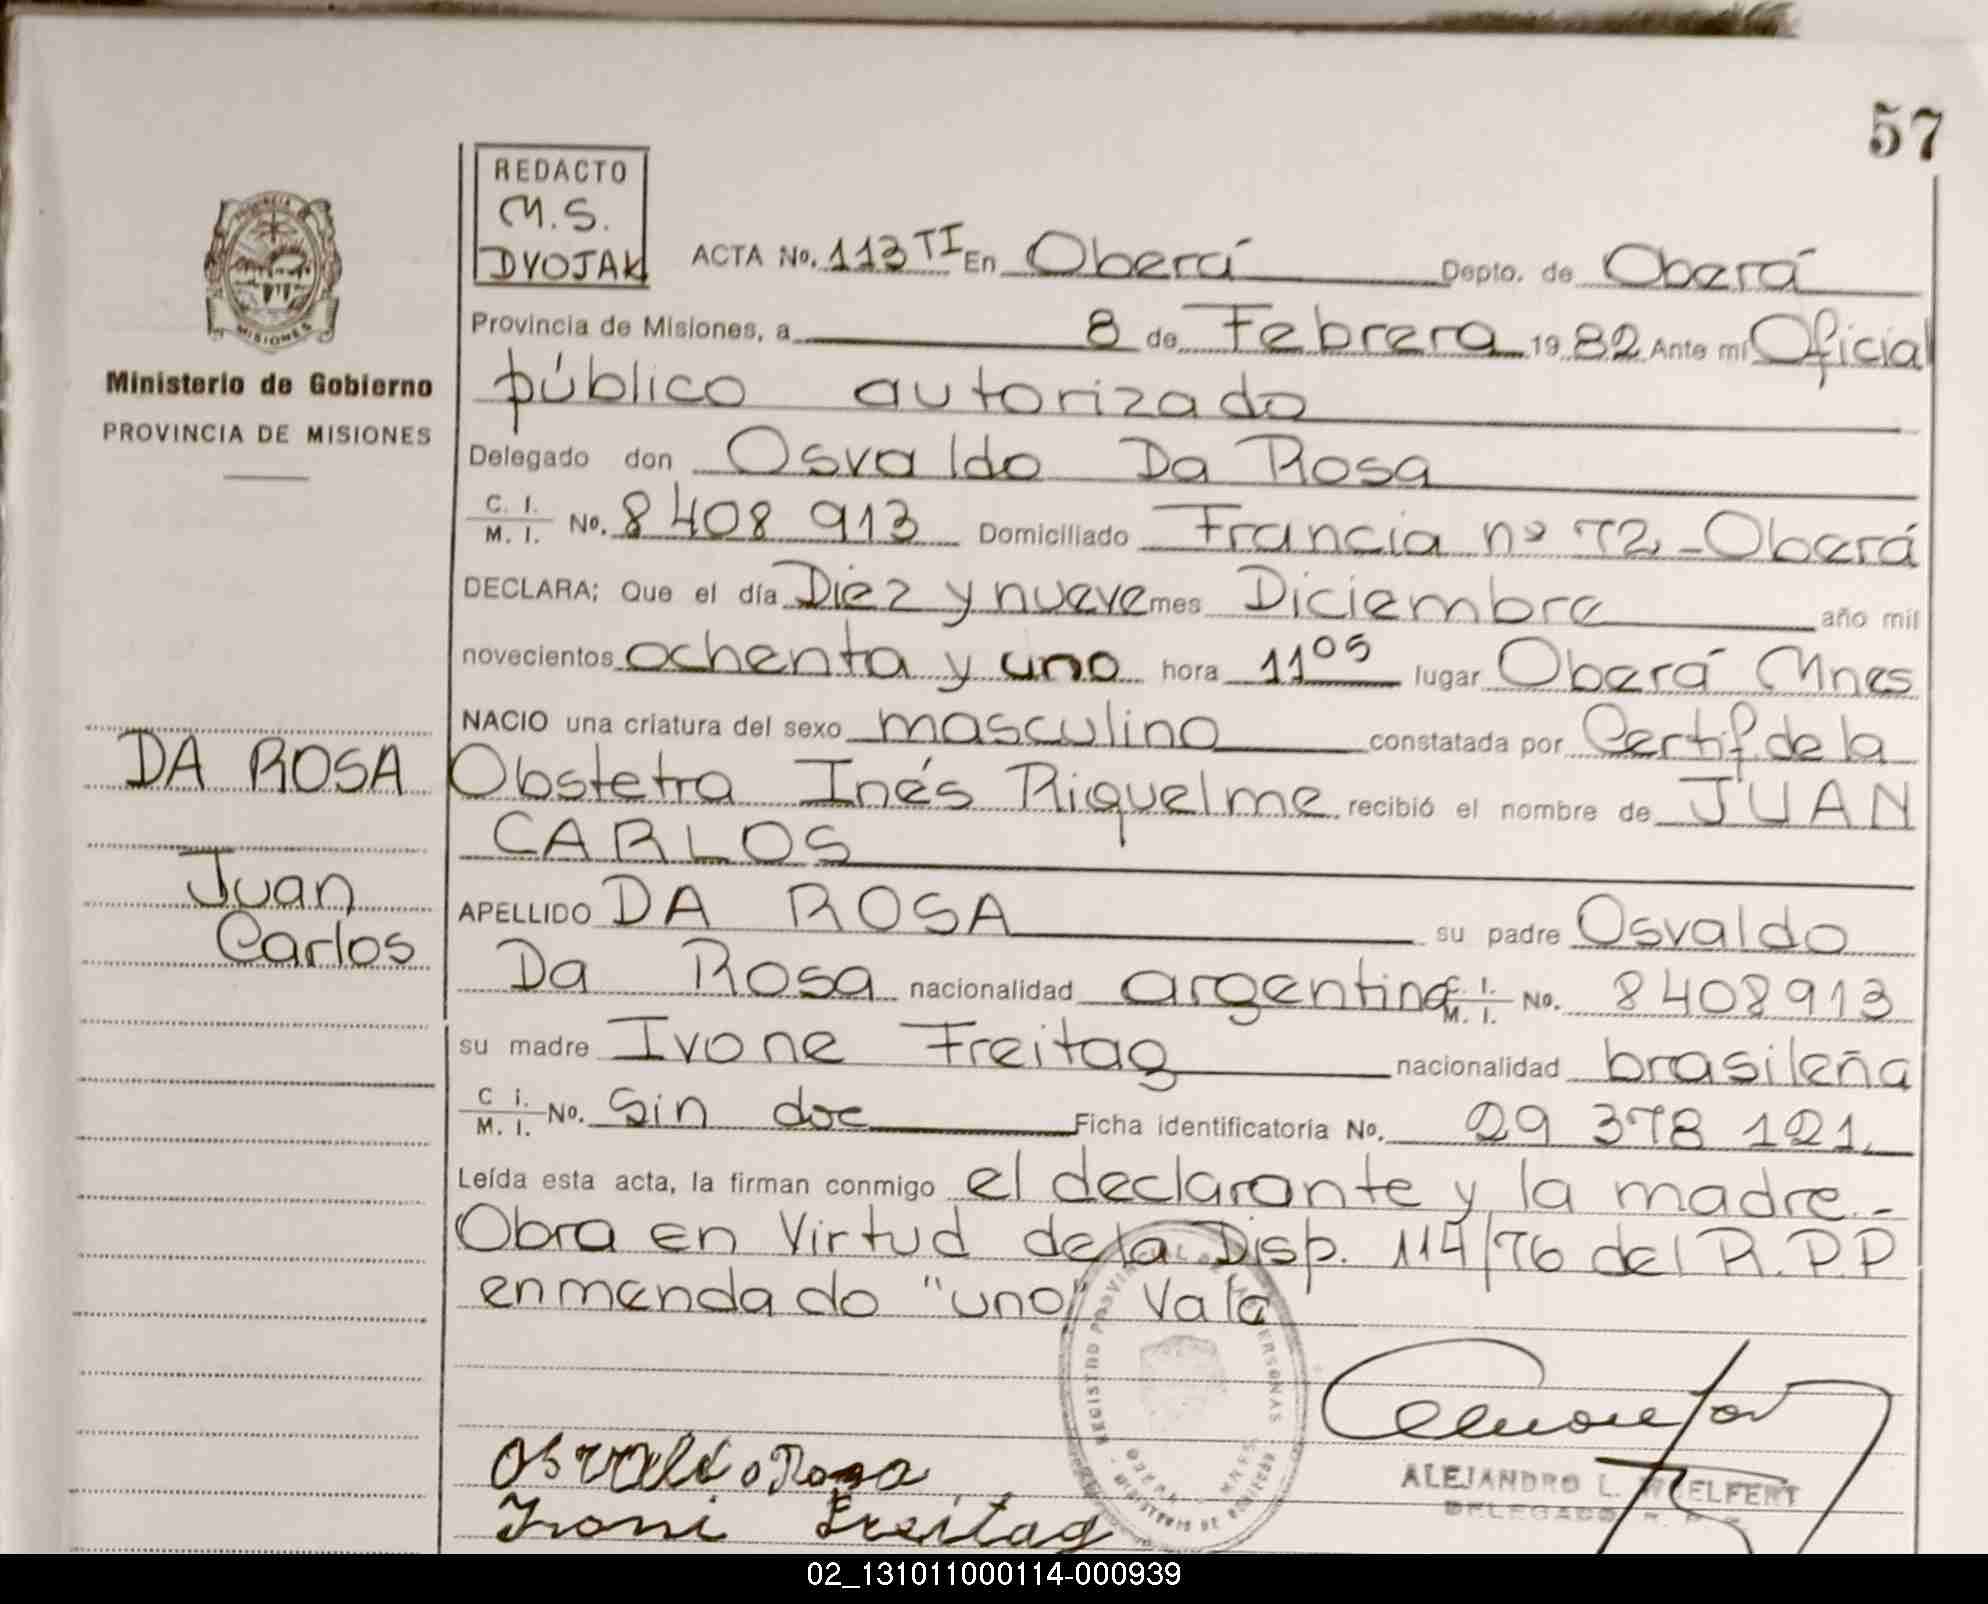 57
REDACTO
M.S.
DVOJAK
ACTA No. 113 TI En Oberá Depto. de Oberá
Provincia de Misiones, a 8 de Febrero 1982 Ante mi Oficial
público autorizado
Delegado don Osvaldo Da Rosa
C. I. / M. I. No. 8408 913 Domiciliado Francia nº 72 - Oberá
DECLARA; Que el día Diez y nueve mes Diciembre año mil
novecientos ochenta y uno hora 11 05 lugar Oberá Mnes
NACIO una criatura del sexo masculino constatada por Certif. de la
Obstetra Inés Riquelme recibió el nombre de JUAN
CARLOS
APELLIDO DA ROSA su padre Osvaldo
Da Rosa nacionalidad argentina C. I. / M. I. No. 8408913
su madre Ivone Freitag nacionalidad brasileña
C i. / M. I. No. Sin doc Ficha identificatoria No. 29 378 121.
Leída esta acta, la firman conmigo el declarante y la madre.-
Obra en Virtud de la Disp. 114/76 del R.P.P
enmendado "uno" Vale
Osvaldo Rosa
Ivoni Freitag
ALEJANDRO L. WELFERT
DELEGADO
MISIONES
Ministerio de Gobierno
PROVINCIA DE MISIONES
DA ROSA
Juan
Carlos
02_131011000114-000939